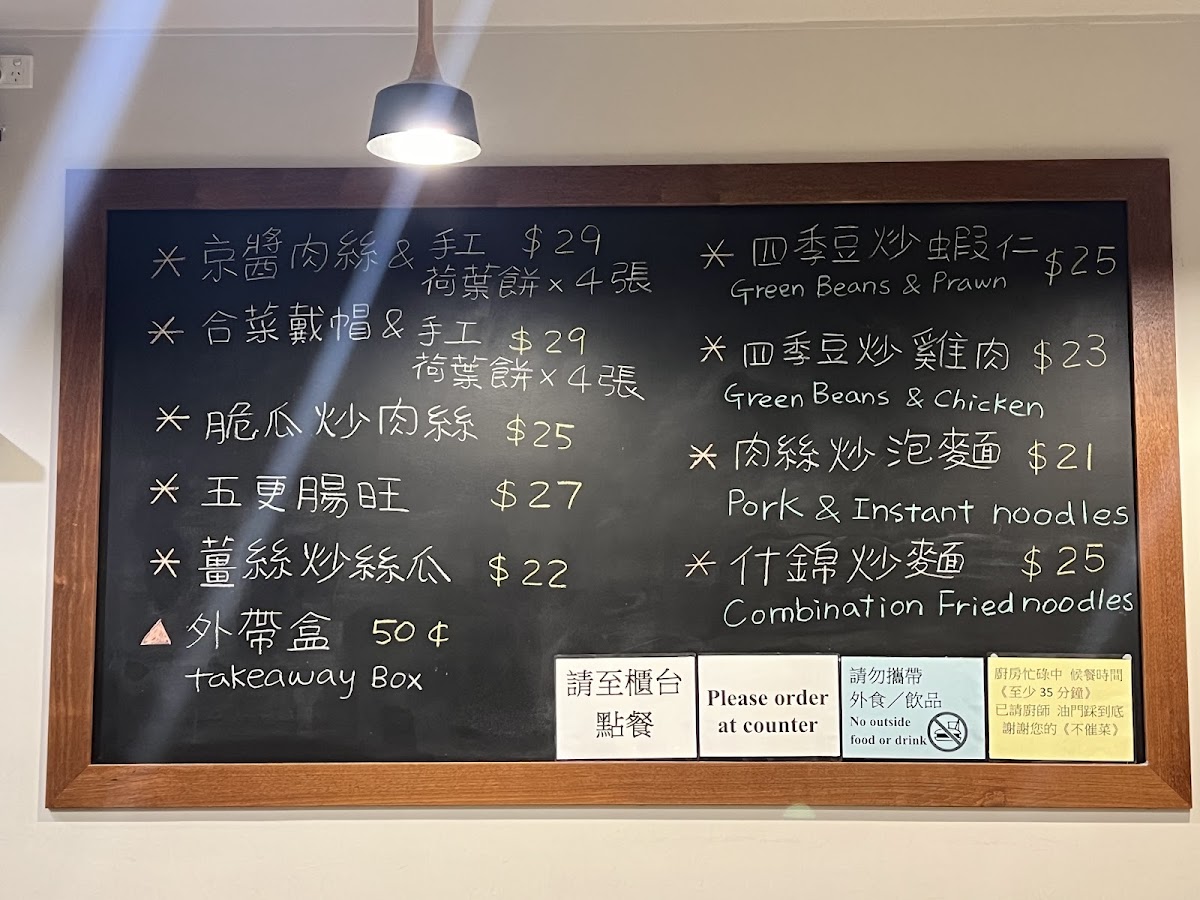 * 京醬肉絲 & 手工 $29
荷葉餅 × 4張
* 合菜戴帽 & 手工 $29
荷葉餅 × 4張
* 脆瓜炒肉絲 $25
* 五更腸旺 $27
* 薑絲炒絲瓜 $22
▲ 外帶盒 50¢
takeaway Box
* 四季豆炒蝦仁 $25
Green Beans & Prawn
* 四季豆炒雞肉 $23
Green Beans & Chicken
* 肉絲炒泡麵 $21
Pork & Instant noodles
* 什錦炒麵 $25
Combination Fried noodles
請至櫃台
點餐
Please order
at counter
請勿攜帶
外食／飲品
No outside
food or drink
廚房忙碌中 候餐時間
《至少 35 分鐘》
已請廚師 油門踩到底
謝謝您的《不催菜》